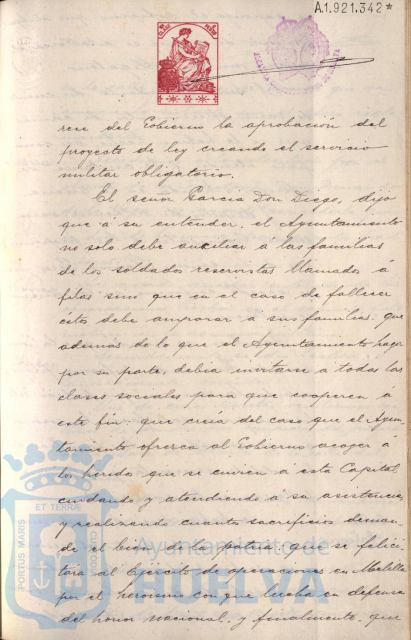 A.1.921.342*
rese del Gobierno la aprobación del
proyecto de ley creando el servicio
militar obligatorio.
El señor Garcia Don Diego, dijo
que á su entender, el Ayuntamiento
no solo debe auxiliar á las familias
de los soldados reservistas llamados á
filas sino que en el caso de fallecer
éstos debe amparar á sus familias: que
además de lo que el Ayuntamiento haga
por su parte, debia invitarse á todas las
clases sociales para que cooperen á
este fin: que creia del caso que el Ayun-
tamiento ofrezca al Gobierno acoger á
los heridos que se envien á esta Capital
cuidando y atendiendo á su asistencia
y realizando cuantos sacrificios deman-
de el bien de la patria: que se felici-
tara al Ejército de operaciones en Melilla
por el heroismo con que lucha en defensa
del honor nacional, y finalmente, que
PORTUS MARIS ET TERRÆ CUSTODIA
Ayuntamiento de
HUELVA